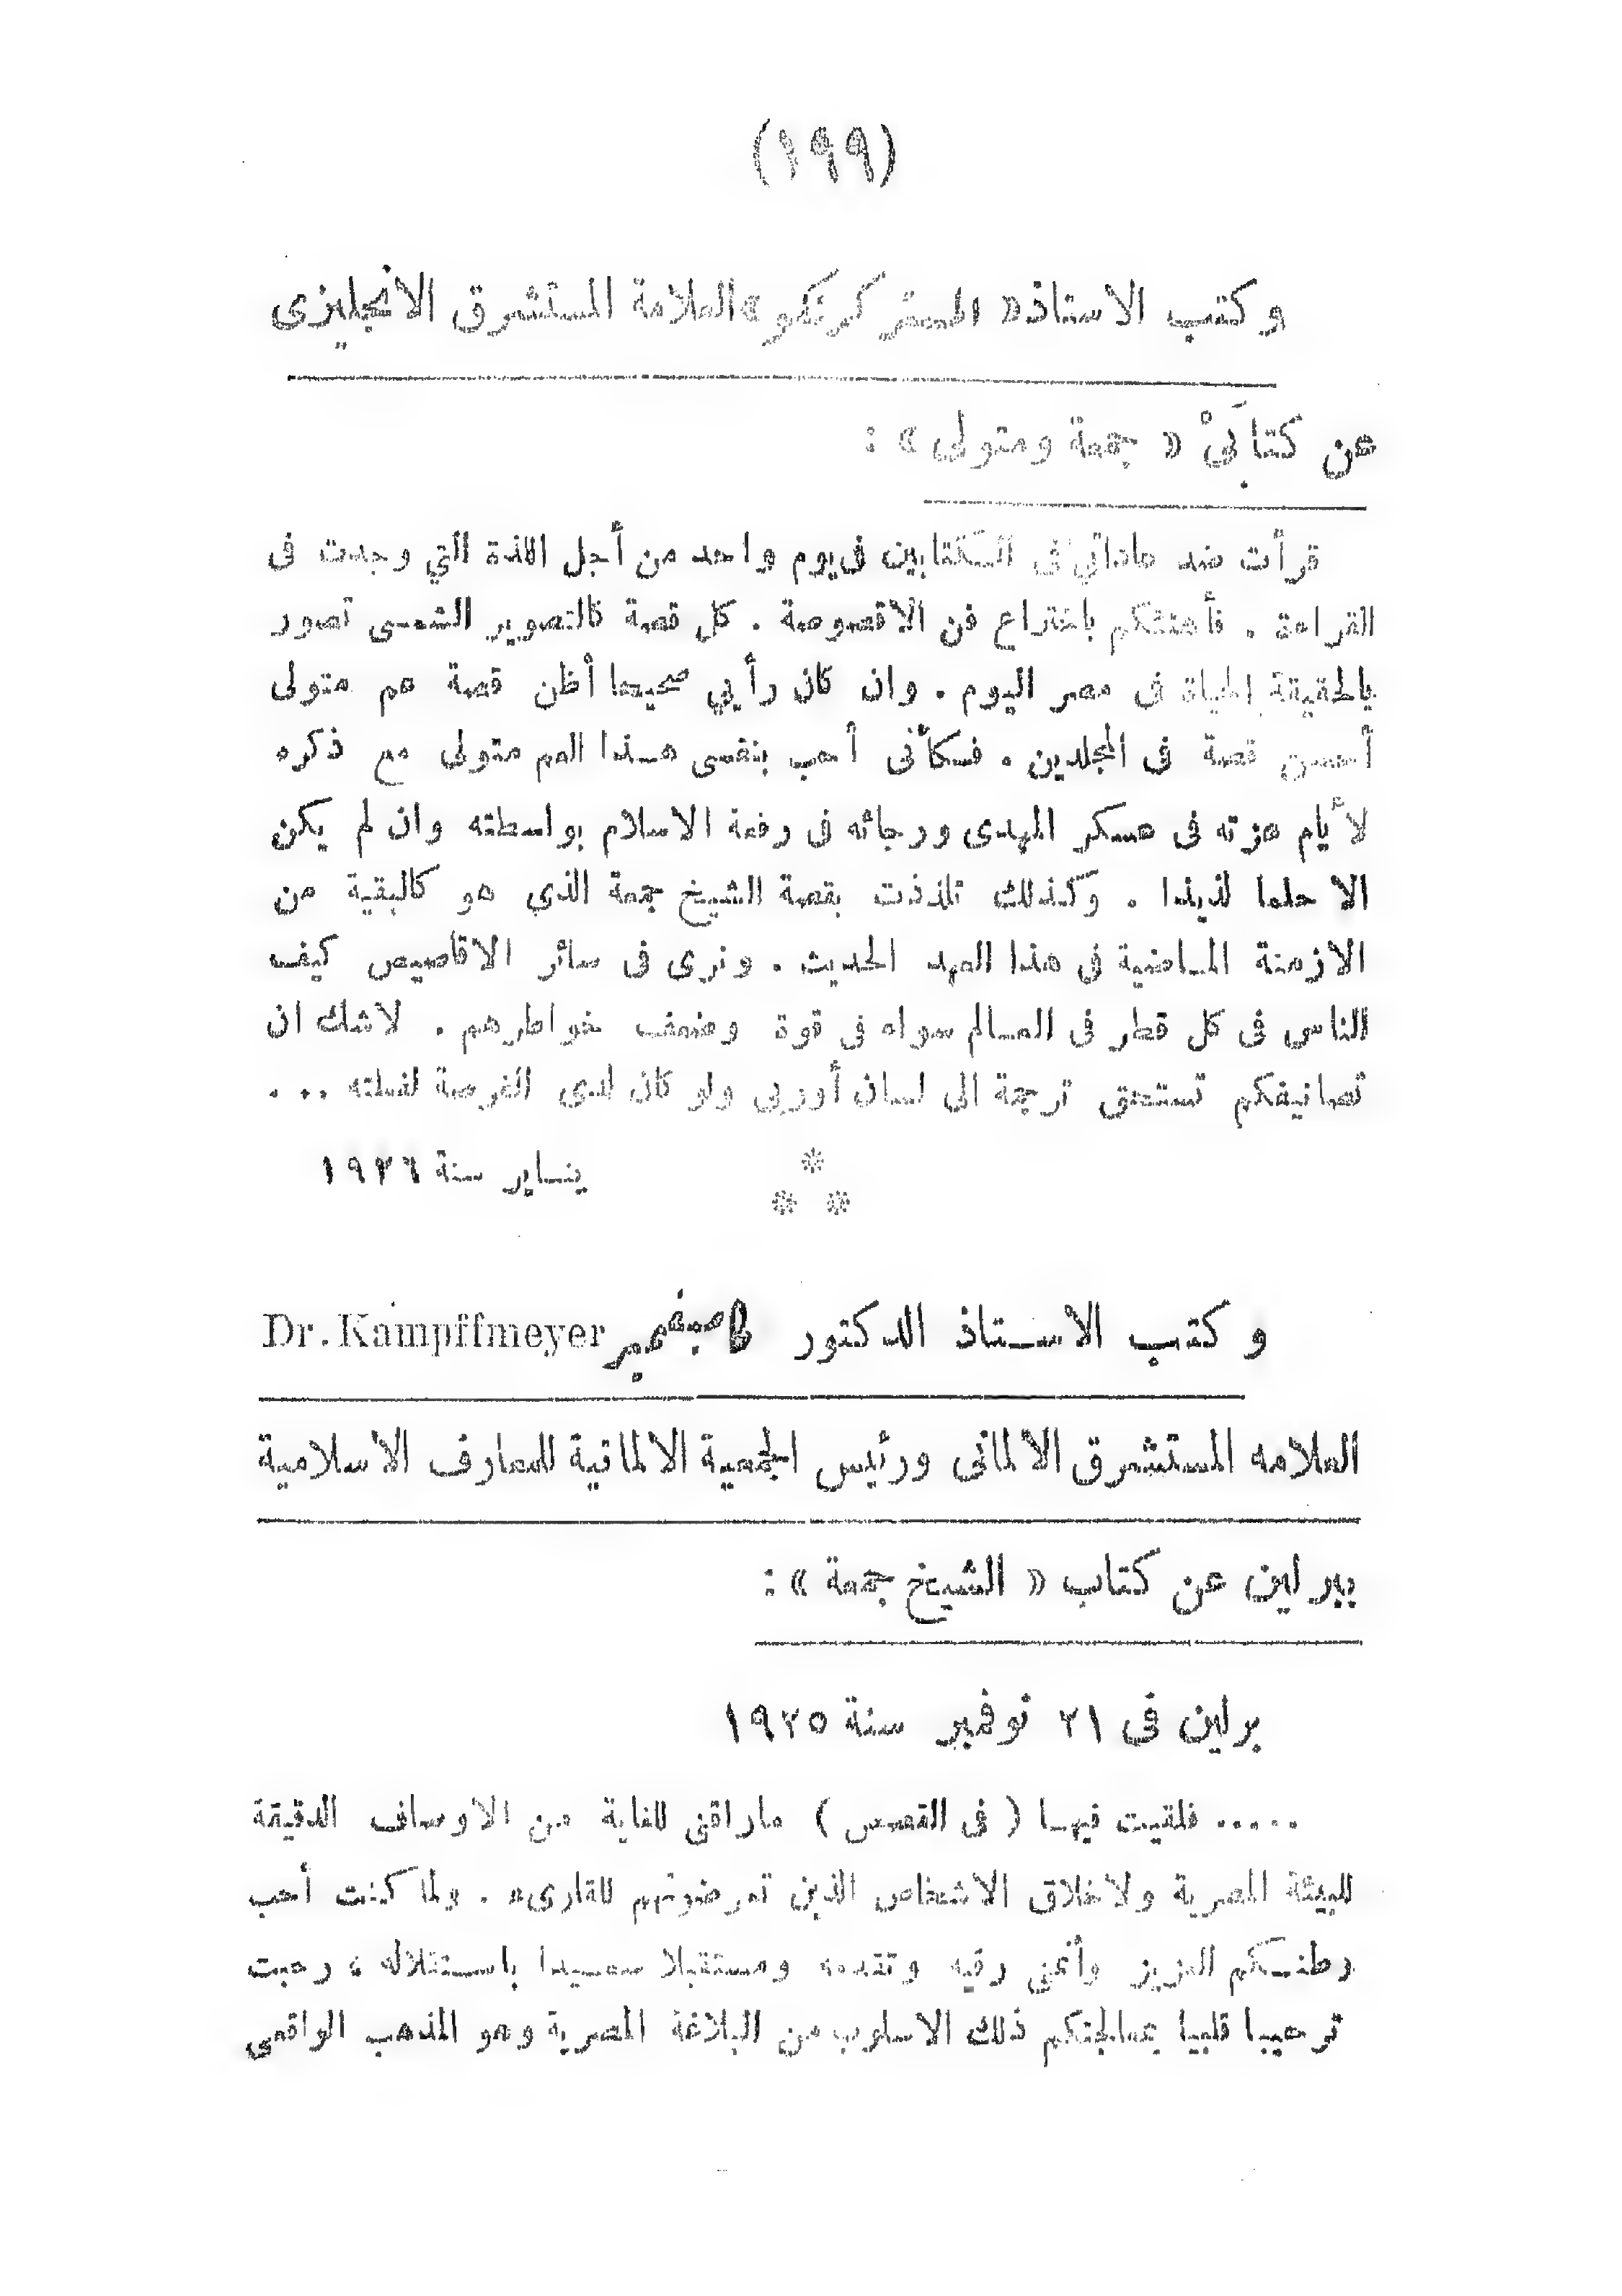 (١٩٩)
وكتب الاستاذ « المستر كرنكو » العلامة المستشرق الانجليزى
عن كتابَىْ « جمعة ومتولى » :
قرأت ضد عاداتي فى الكتابين فى يوم واحد من أجل اللذة التي وجدت فى
القراءة . فأهنئكم باختراع فن الاقصوصة . كل قصة كالتصوير الشمسى تصور
بالحقيقة الحياة فى مصر اليوم . وان كان رأيي صحيحا أظن قصة عم متولى
أحسن قصة فى المجلدين . فكأنى أحب بنفسى هذا العم متولى مع ذكره
لأيام عزته فى عسكر المهدى ورجائه فى رفعة الاسلام بواسطته وان لم يكن
الا حلما لذيذا . وكذلك تلذذت بقصة الشيخ جمعة الذي هو كالبقية من
الازمنة الماضية فى هذا العهد الحديث . ونرى فى سائر الاقاصيص كيف
الناس فى كل قطر فى العالم سواء فى قوة وضعف خواطرهم . لاشك ان
تصانيفكم تستحق ترجمة الى لسان أوربى ولو كان لدى الفرصة لفعلته ...
يناير سنة ١٩٢٦
وكتب الاستاذ الدكتور كامبفمير Dr. Kampffmeyer
العلامه المستشرق الالمانى ورئيس الجمعية الالمانية للمعارف الاسلامية
ببرلين عن كتاب « الشيخ جمعة » :
برلين فى ٢١ نوفمبر سنة ١٩٢٥
..... فلقيت فيها ( فى القصص ) ماراقنى للغاية من الاوصاف الدقيقة
للبيئة المصرية ولاخلاق الاشخاص الذين تعرضونهم للقارىء . ولما كنت أحب
وطنكم العزيز وأتمنى رقيه وتقدمه ومستقبلا سعيدا باستقلاله ، رحبت
ترحيبا قلبيا بمعالجتكم ذلك الاسلوب من البلاغة المصرية وهو المذهب الواقعى